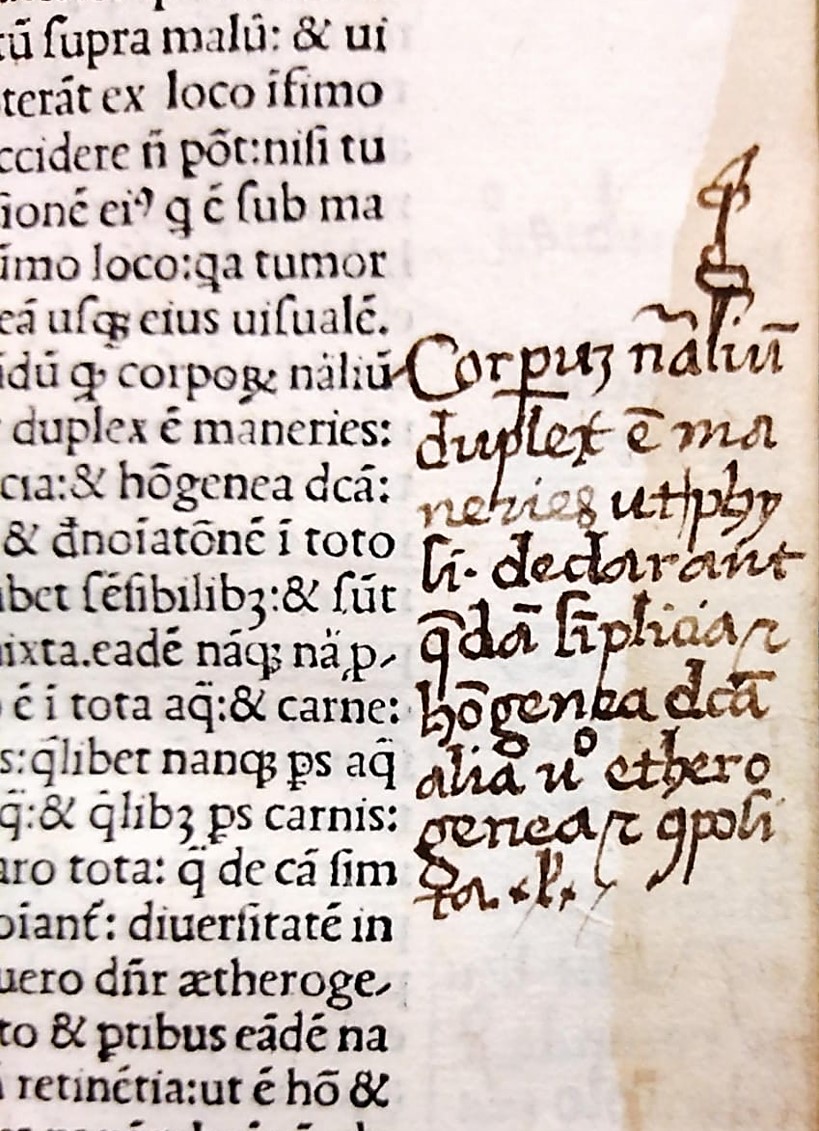 tū ſupra malū: & ui
terāt ex loco īfimo
ccidere n̄ pōt:niſi tu
ſionē eiꝰ q ē ſub ma
īmo loco:qa tumor
eā uſqꝫ eius uiſualē.
idū ꝙ corpoꝝ nāliū
duplex ē maneries:
cia:& hōgenea dcā:
& đnoīatōnē ī toto
abet ſēſibilibꝫ:& ſūt
mixta.eadē nāqꝫ nā ꝓ
ē ī tota aq̄:& carne:
s:q̄libet nanqꝫ ꝑs aq̄
q̄:& q̄libꝫ ꝑs carnis:
aro tota: q̄ de cā ſim
oīant̄: diuerſitatē in
uero dn̄r ætheroge
to & ꝑtibus eādē na
retinētia:ut ē hō &
Corpuꝫ n̄aliū
duplex ē ma
neries ut phy
ſi. declarant
q̄dā ſīplicia ⁊
hōgenea dcā
alia uº ethero
genea ⁊ ꝯpoſi
ta.